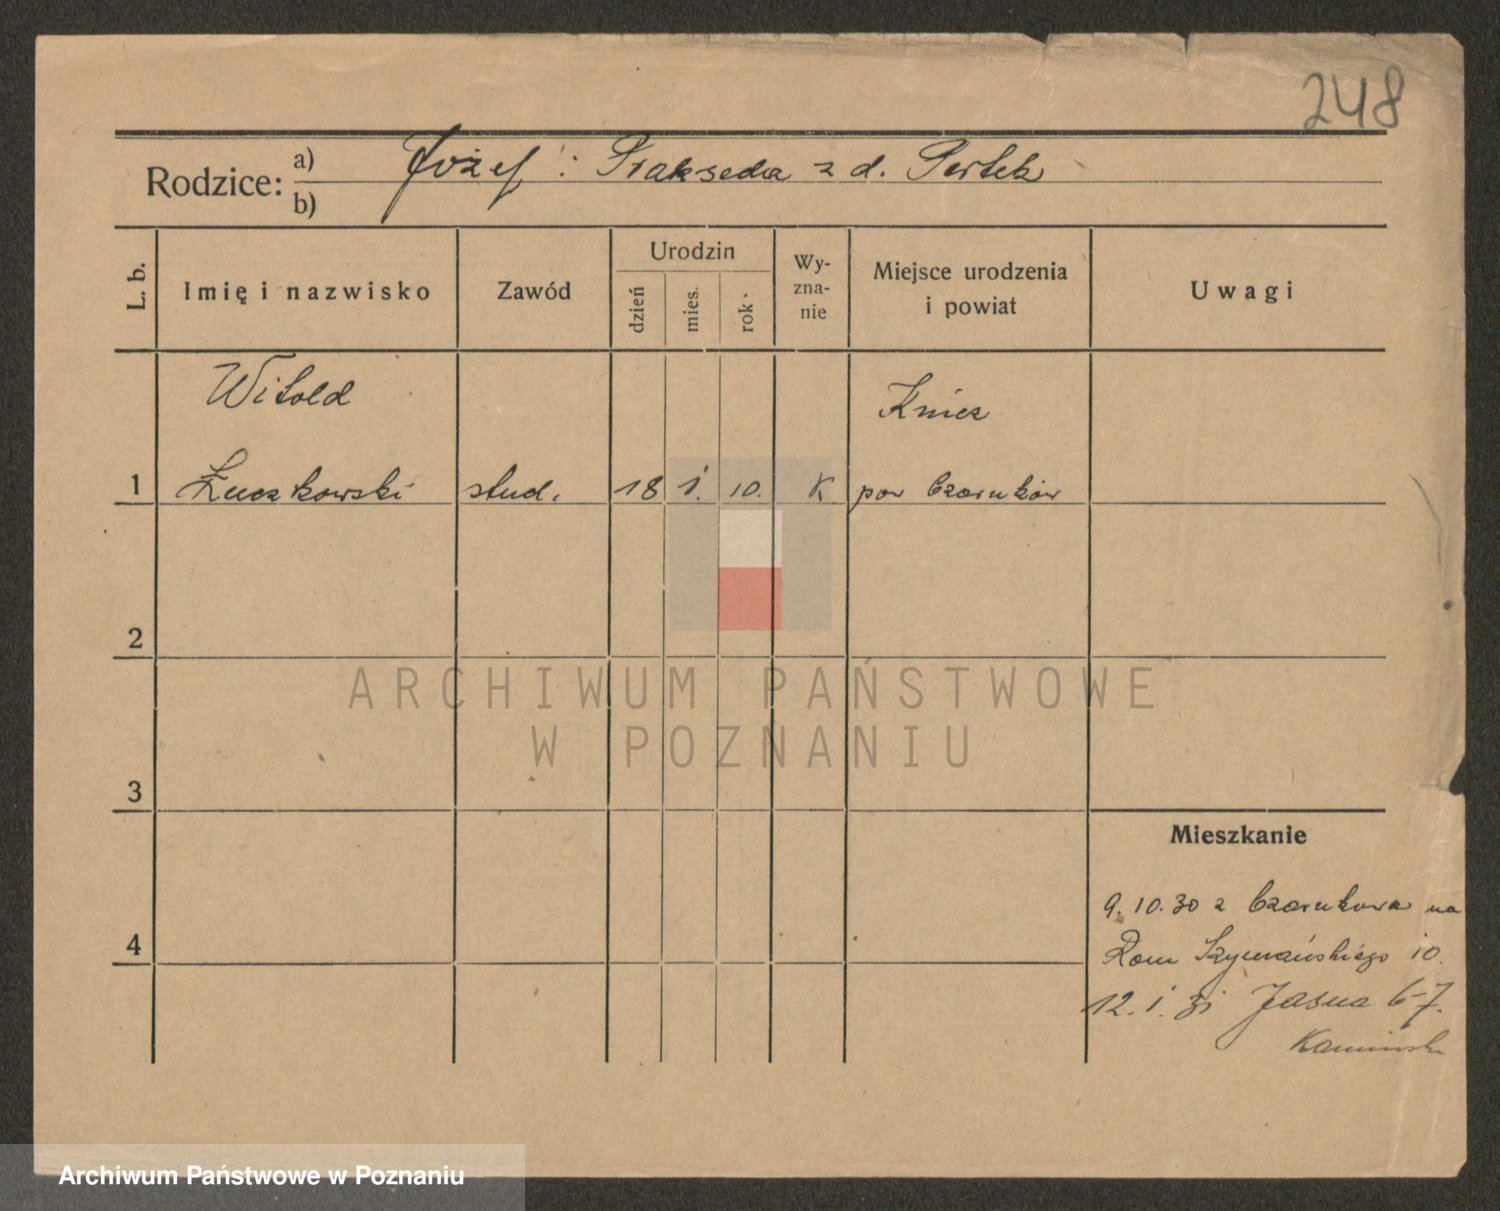 248
Rodzice: a) Józef : Prakseda z d. Pertek
b)
L. b. Imię i nazwisko Zawód Urodzin dzień mies. rok Wy-zna-nie Miejsce urodzenia i powiat Uwagi
Witold
1 Łuczkowski stud. 18 1. 10. K pow Czarnków
2
ARCHIWUM PAŃSTWOWE
W POZNANIU
3
Mieszkanie
9.10.30 z Czarnkowa na
4
Rom Szymańskiego 10.
12. 1. 31 Jasna 6-7.
Kaminski
Archiwum Państwowe w Poznaniu